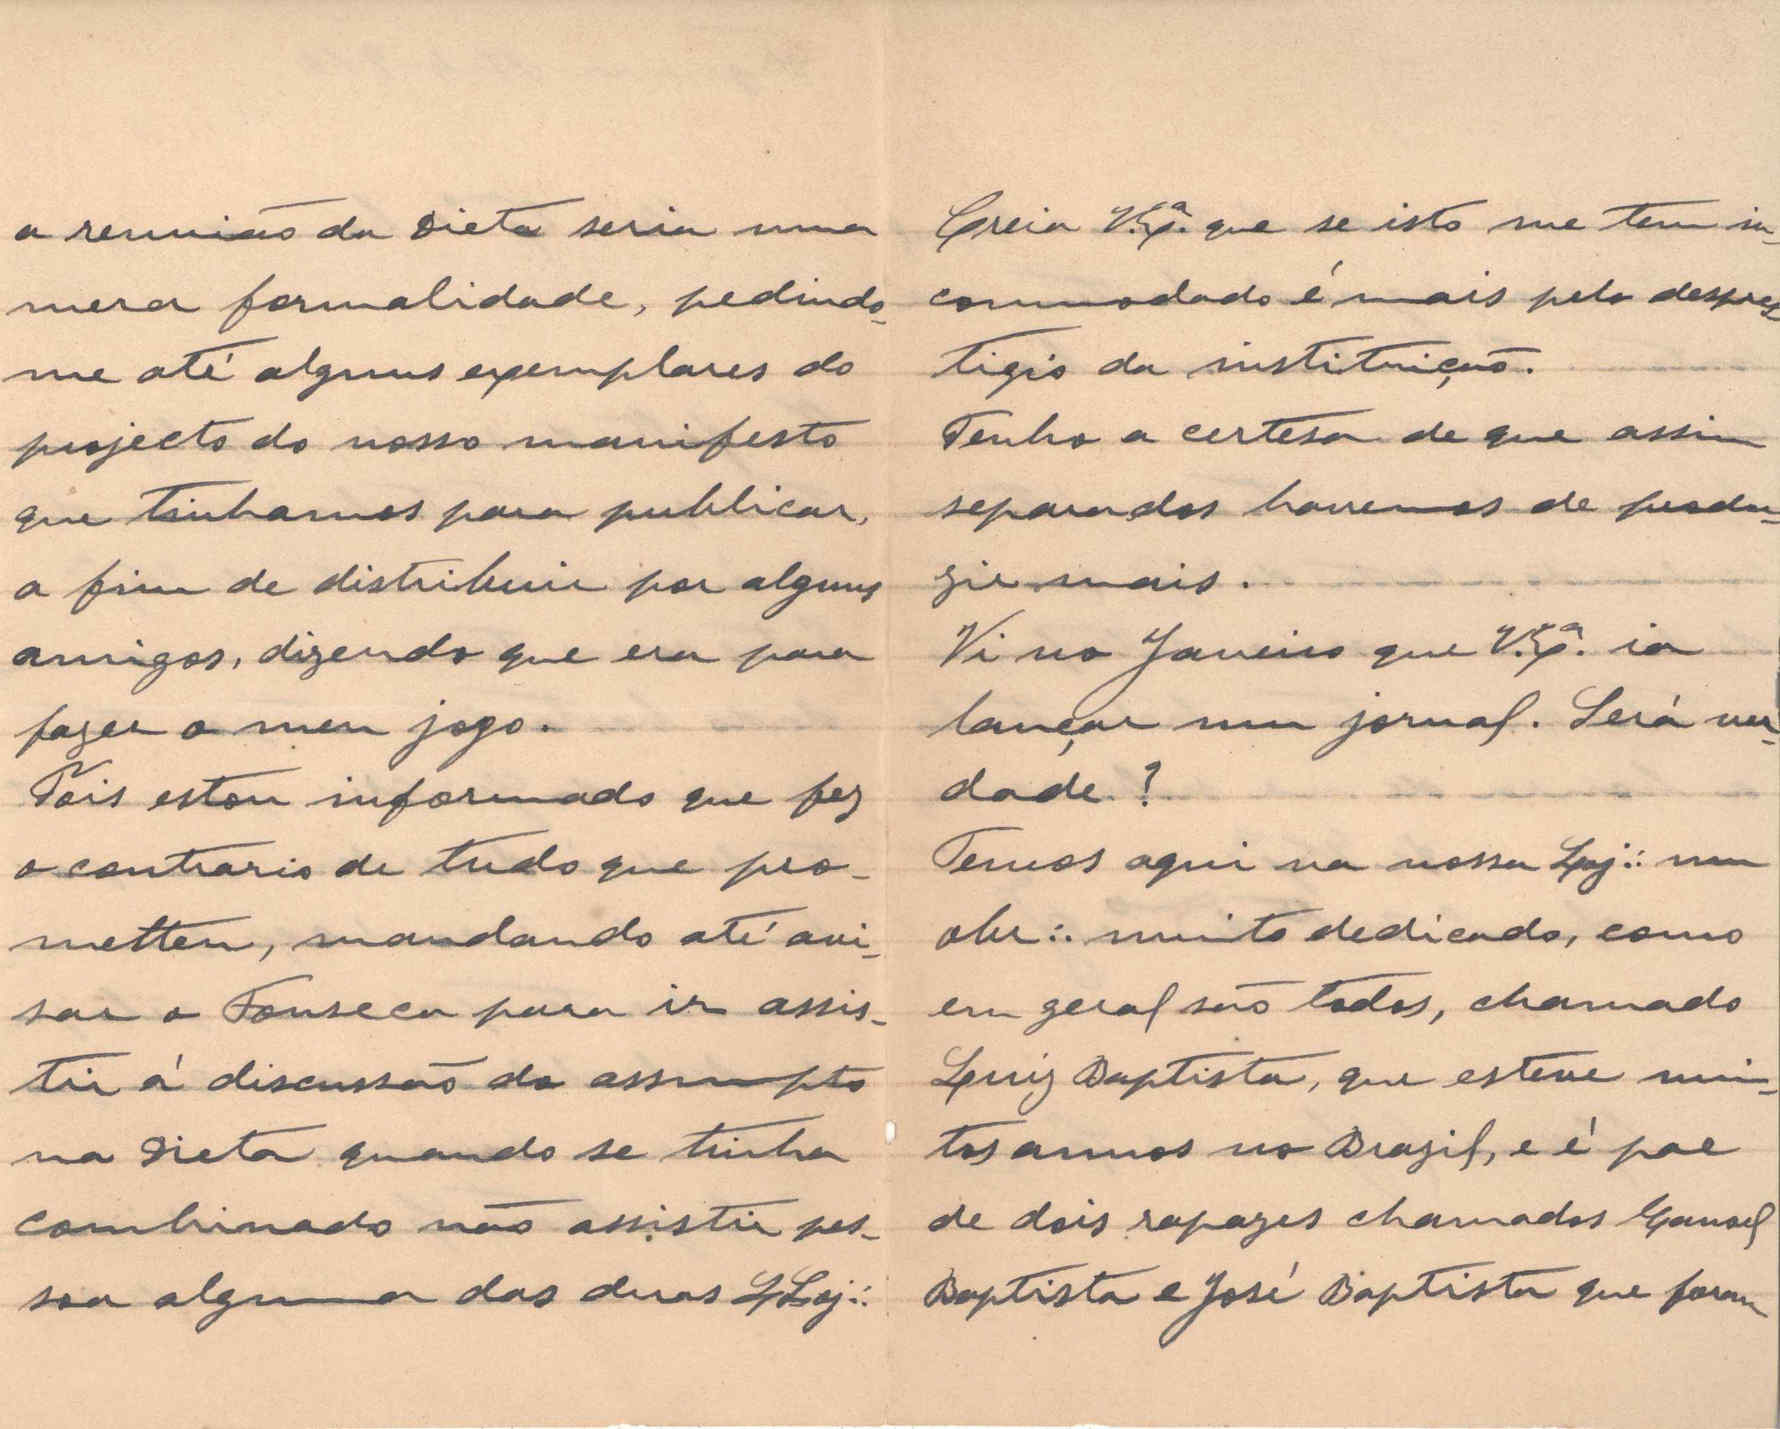 a reunião da Dieta seria uma
mera formalidade, pedindo-
me até alguns exemplares do
projecto do nosso manifesto
que tinhamos para publicar,
a fim de distribuir por alguns
amigos, dizendo que era para
fazer o meu jogo.
Pois estou informado que fez
o contrario de tudo que pro-
metteu, mandando até avi-
sar o Fonseca para ir assis-
tir á discussão do assumpto
na Dieta quando se tinha
combinado não assistir pes-
soa alguma das duas LLoj∴
Creia V. Ex.ª que se isto me tem in-
commodado é mais pelo despres-
tigio da instituição.
Tenho a certesa de que assim
separados havemos de produ-
zir mais.
Vi no Janeiro que V. Ex.ª ia
lançar um jornal. Será ver-
dade?
Temos aqui na nossa Loj∴ um
obr∴ muito dedicado, como
em geral são todos, chamado
Luiz Baptista, que esteve mui-
tos annos no Brazil, e é pae
de dois rapazes chamados
Baptista e José Baptista que foram